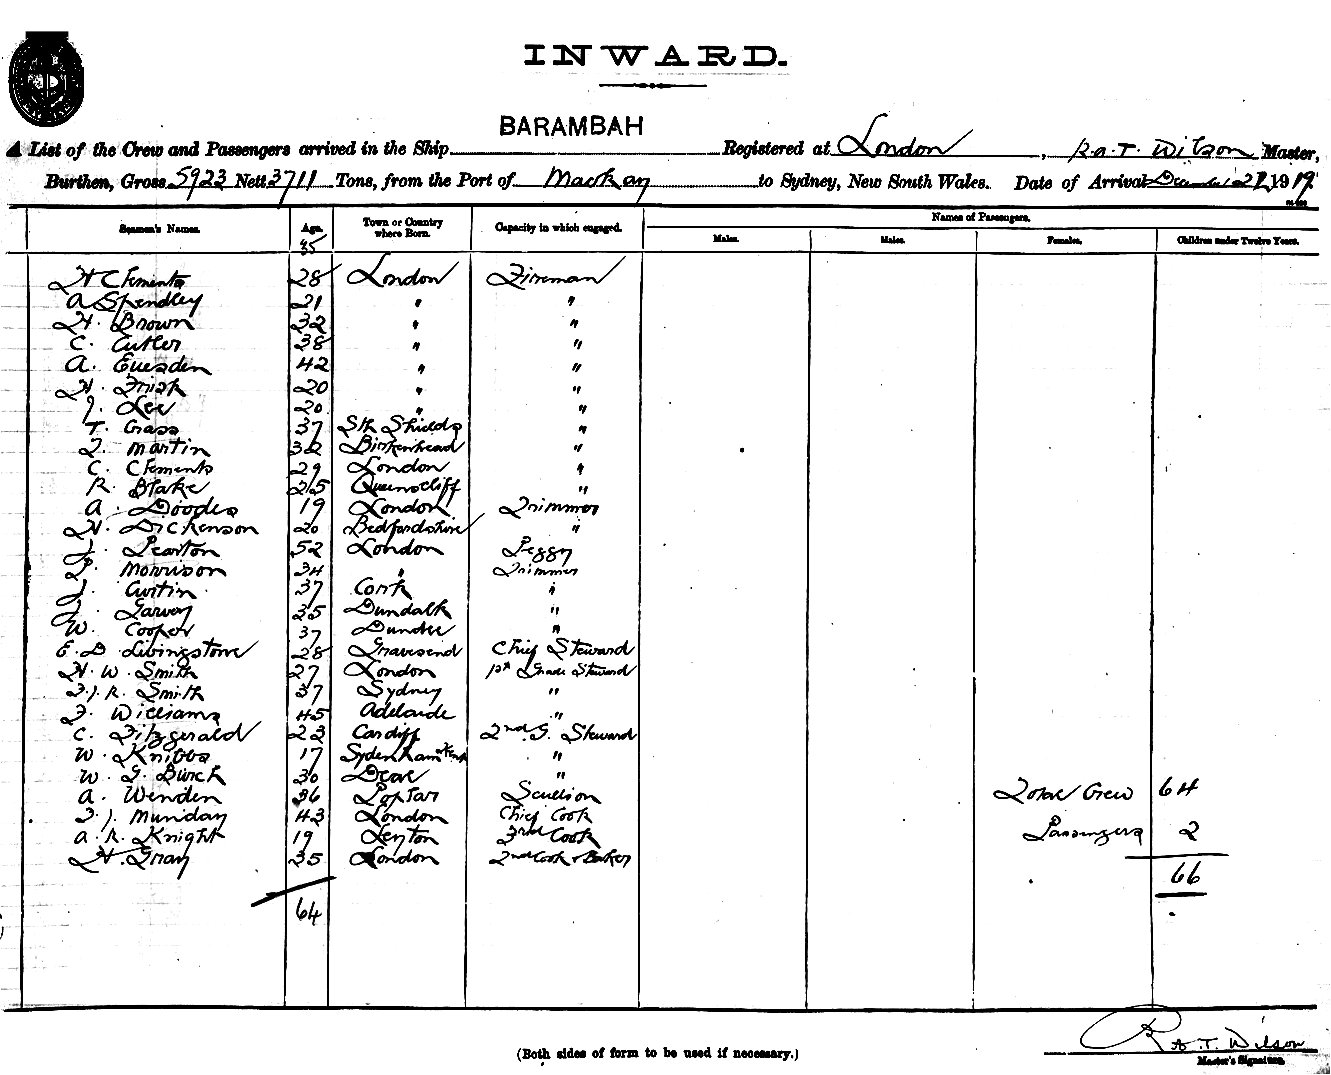 INWARD.
BARAMBAH
A List of the Crew and Passengers arrived in the Ship Registered at London, R.A.T. Wilson Master,
Burthen, Gross 5923 Nett 3711 Tons, from the Port of Mackay to Sydney, New South Wales. Date of Arrival December 27, 1919
Seamen's Names. Age. Town or Country where Born. Capacity in which engaged. Names of Passengers.
Males. Males. Females. Children under Twelve Years.
35
H Clements 28 London Fireman
A Spendley 21 " "
H. Brown 32 " "
C. Cutler 38 " "
A. Euesden 42 " "
H. Frisk 20 " "
J. Lee 20 " "
T. Grass 37 Sth Shields "
J. Martin 32 Birkenhead "
C. Clements 29 London "
R. Blake 25 Queenscliff "
A. Doodes 19 London Trimmer
H. Dickenson 20 Bedfordshire "
J. Pearton 52 London Peggy
P. Morrison 34 " Trimmer
J. Curtin 37 Cork "
J. Garvey 35 Dundalk "
W. Cooper 37 Dundee "
E. D Livingstone 28 Gravesend Chief Steward
H. W. Smith 27 London 1st Grade Steward
F.J.R. Smith 37 Sydney "
F. Williams 45 Adelaide "
C. Fitzgerald 23 Cardiff 2nd G. Steward
W. Knibbs 17 Sydenham Kent "
W. G. Burch 30 Deal "
A. Wenden 36 Poplar Scullion Total Crew 64
F.J. Munday 43 London Chief Cook
A. R. Knight 19 Leyton 3rd Cook Passengers 2
H. Gray 35 London 2nd Cook & Baker
66
64
R A. T. Wilson
(Both sides of form to be used if necessary.)
Master's Signature.